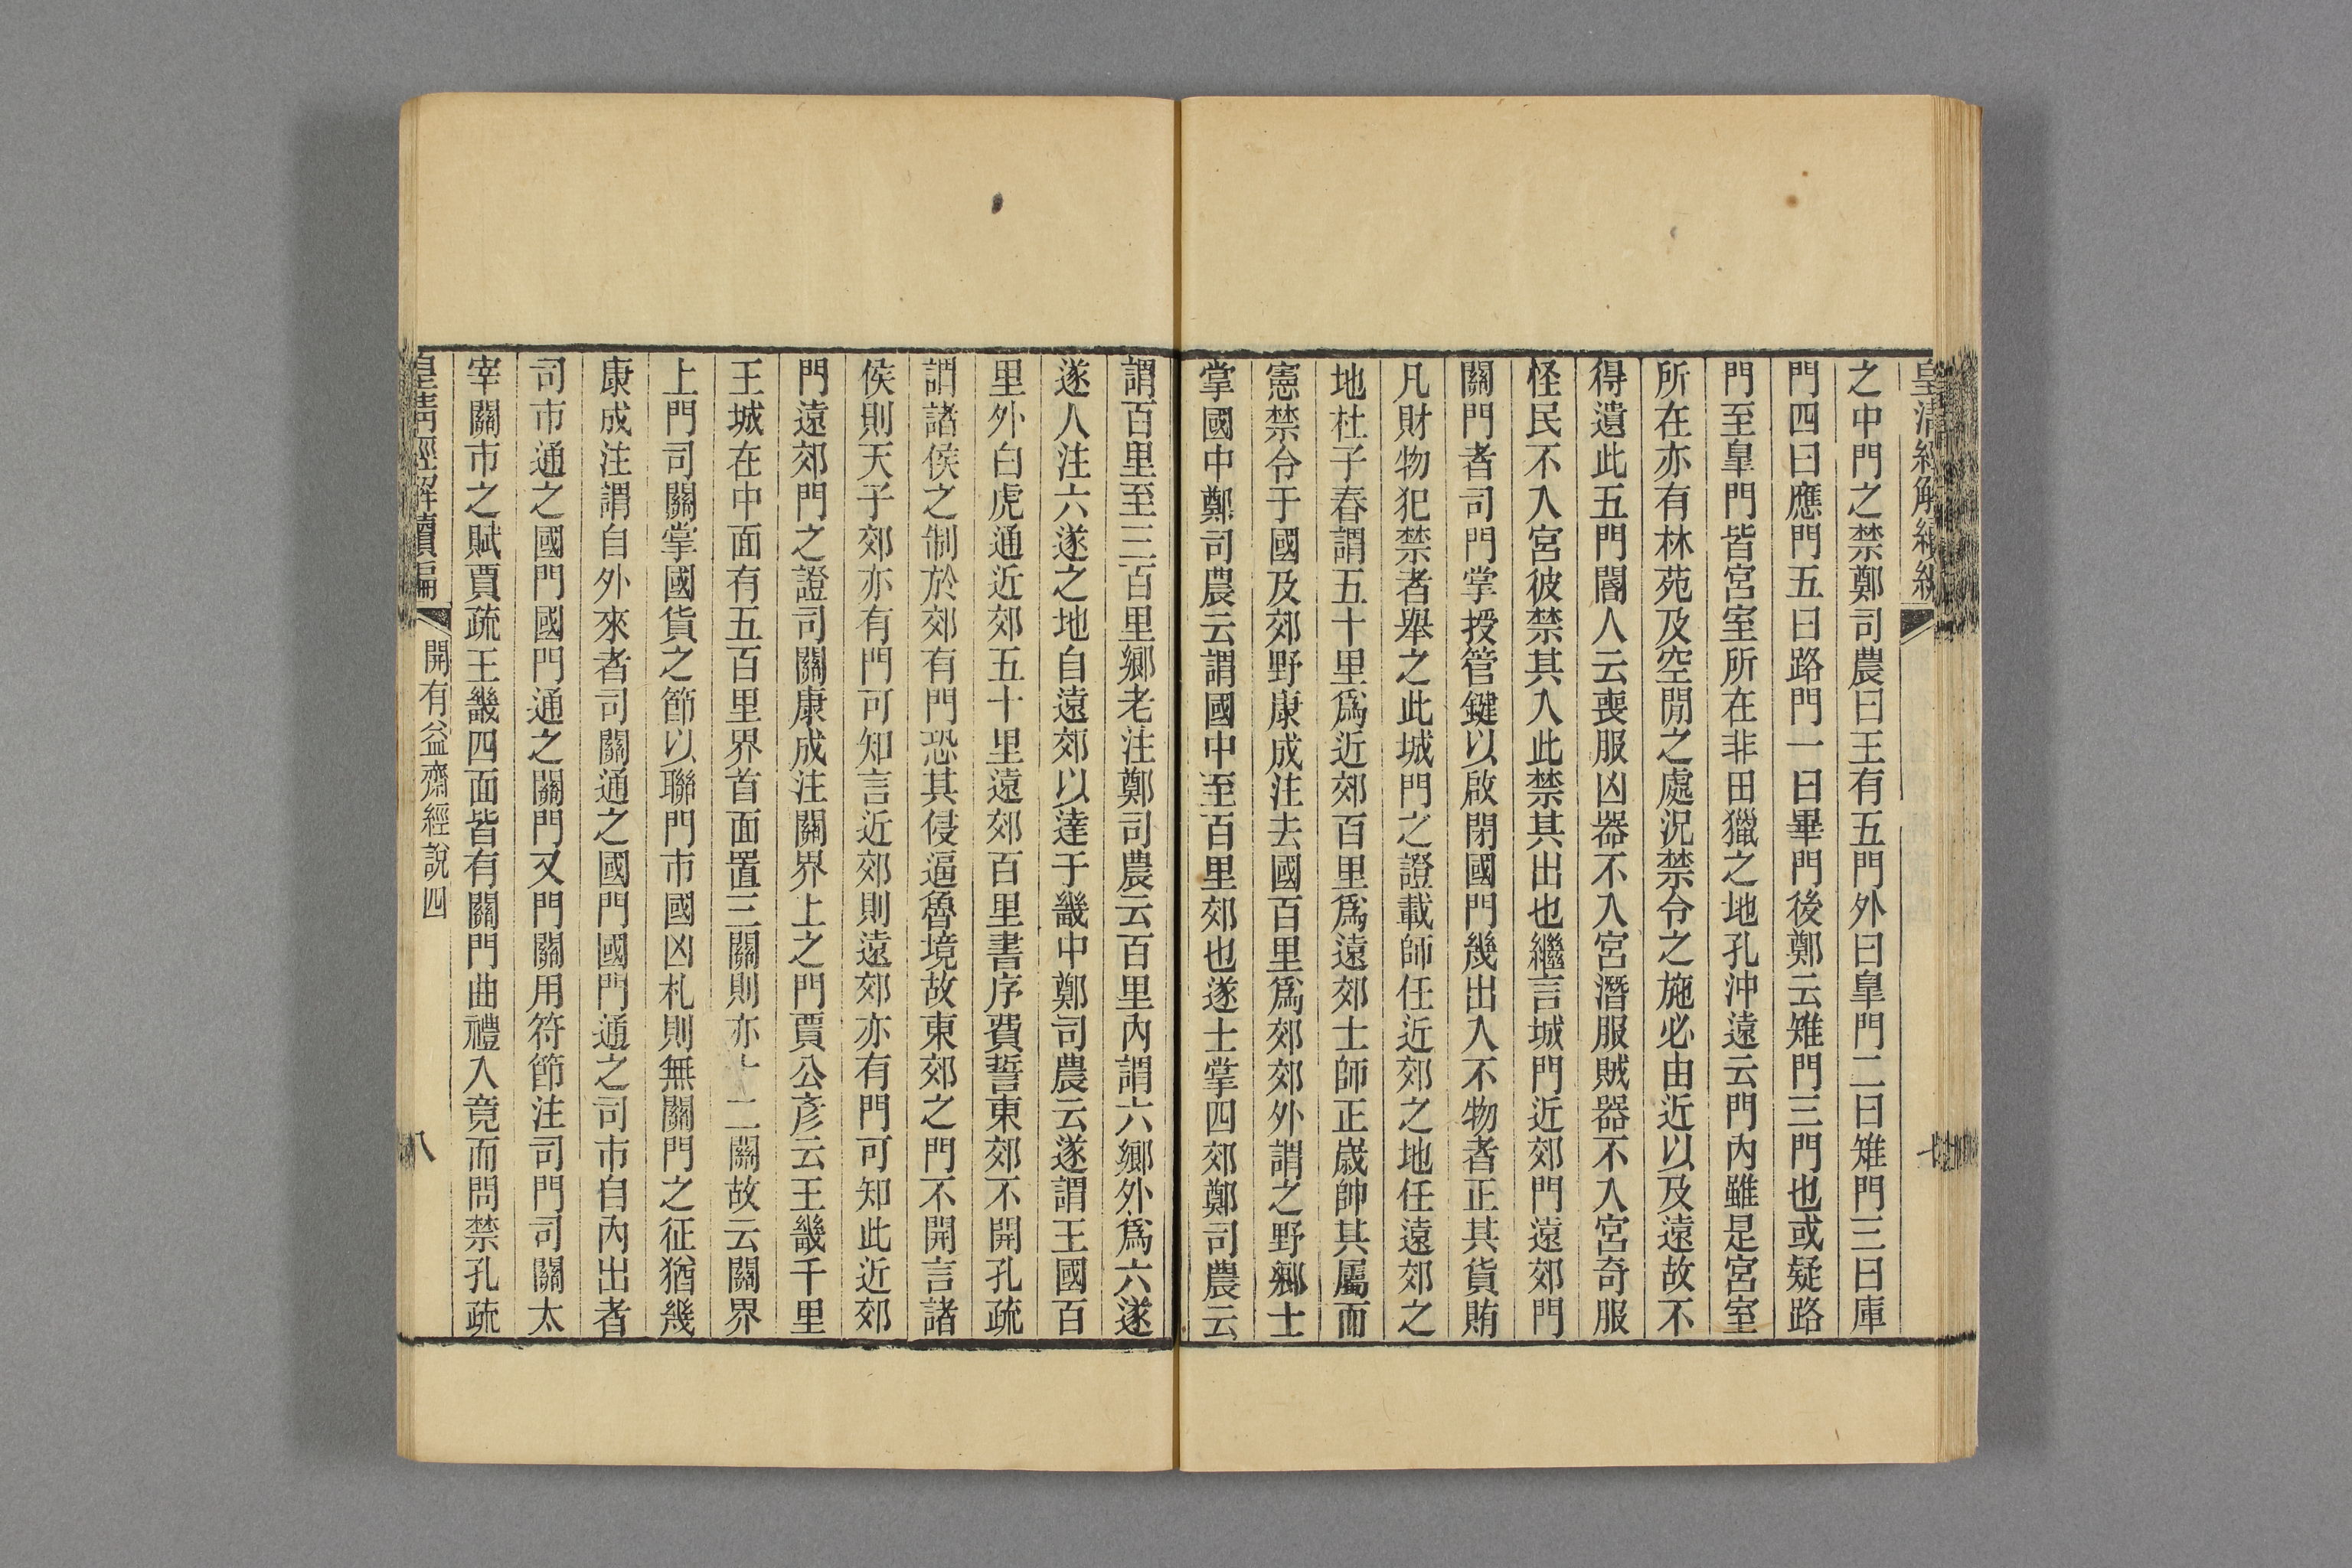 皇清經解續編
之中門之禁鄭司農曰王有五門外曰皐門二曰雉門三曰庫
門四曰應門五曰路門一曰畢門後鄭云雉門三門也或疑路
門至皐門皆宮室所在非田獵之地孔沖遠云門內雖是宮室
所在亦有林苑及空閒之處況禁令之施必由近以及遠故不
得遺此五門閽人云喪服凶器不入宮潛服賊器不入宮奇服
怪民不入宮彼禁其入此禁其出也繼言城門近郊門遠郊門
關門者司門掌授管鍵以啟閉國門幾出入不物者正其貨賄
凡財物犯禁者舉之此城門之證載師任近郊之地任遠郊之
地杜子春謂五十里爲近郊百里爲遠郊士師正歲帥其屬而
憲禁令于國及郊野康成注去國百里爲郊郊外謂之野鄉士
掌國中鄭司農云謂國中至百里郊也遂士掌四郊鄭司農云
謂百里至三百里鄉老注鄭司農云百里內謂六鄉外爲六遂
遂人注六遂之地自遠郊以達于畿中鄭司農云遂謂王國百
里外白虎通近郊五十里遠郊百里書序費誓東郊不開孔疏
謂諸侯之制於郊有門恐其侵逼魯境故東郊之門不開言諸
侯則天子郊亦有門可知言近郊則遠郊亦有門可知此近郊
門遠郊門之證司關康成注關界上之門賈公彥云王畿千里
王城在中面有五百里界首面置三關則亦二關故云關界
上門司關掌國貨之節以聯門市國凶札則無關門之征猶幾
康成注謂自外來者司關通之國門國門通之司市自內出者
司市通之國門國門通之關門又門關用符節注司門司關太
宰關市之賦賈疏王畿四面皆有關門曲禮入竟而問禁孔疏
皇清經解續編 開有益齋經說四 八